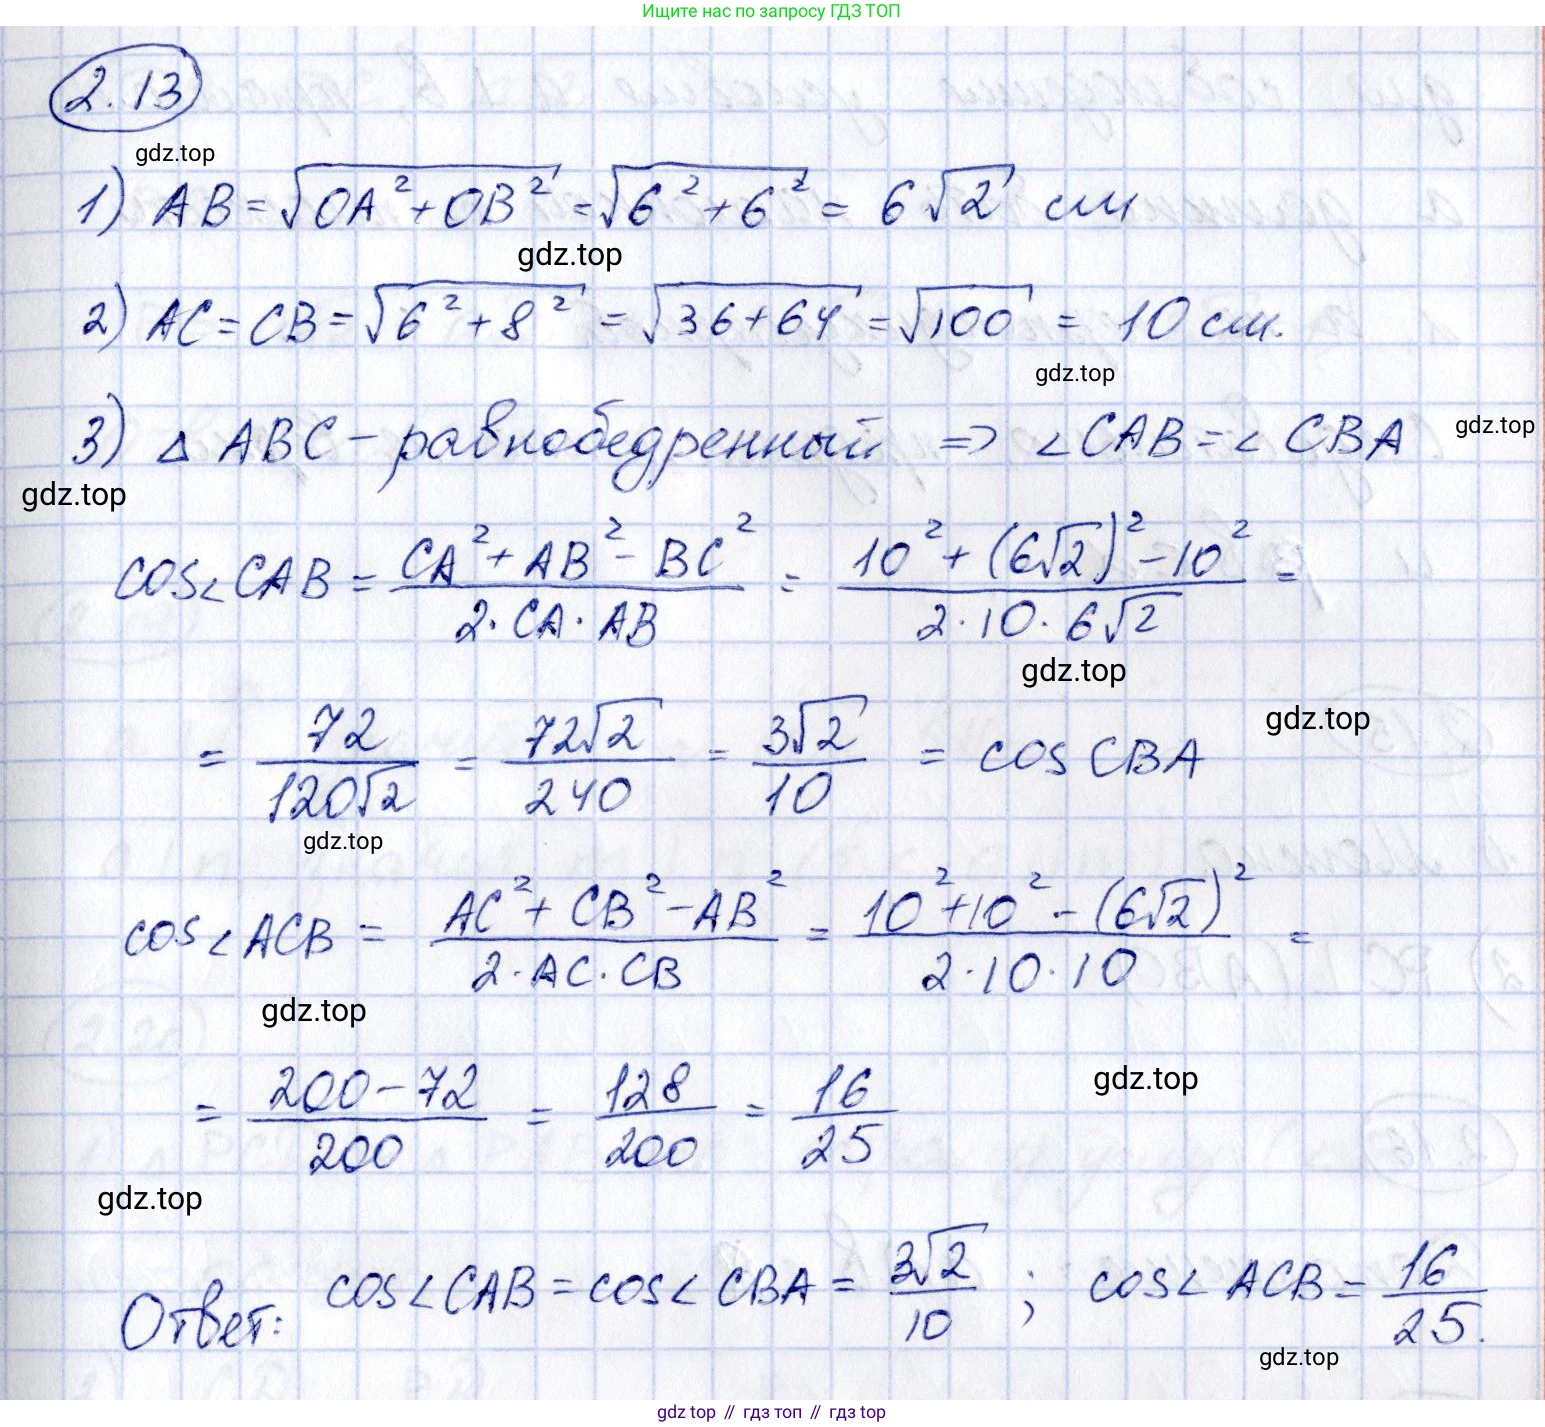 Ищите нас по запросу ГДЗ ТОП
2.13
gdz.top
1) AB = √(OA² + OB²) = √(6² + 6²) = 6√2 см
gdz.top
2) AC = CB = √(6² + 8²) = √(36+64) = √100 = 10 см.
gdz.top
3) △ ABC – равнобедренный ⇒ ∠CAB = ∠CBA
gdz.top
gdz.top
cos∠CAB = (CA² + AB² − BC²)/(2·CA·AB) = (10² + (6√2)² − 10²)/(2·10·6√2) =
gdz.top
gdz.top
= 72/(120√2) = 72√2/240 = 3√2/10 = cos CBA
gdz.top
cos∠ACB = (AC² + CB² − AB²)/(2·AC·CB) = (10² + 10² − (6√2)²)/(2·10·10) =
gdz.top
gdz.top
= (200 − 72)/200 = 128/200 = 16/25
gdz.top
Ответ: cos∠CAB = cos∠CBA = 3√2/10 ; cos∠ACB = 16/25.
gdz.top
gdz top // гдз топ // gdz.top